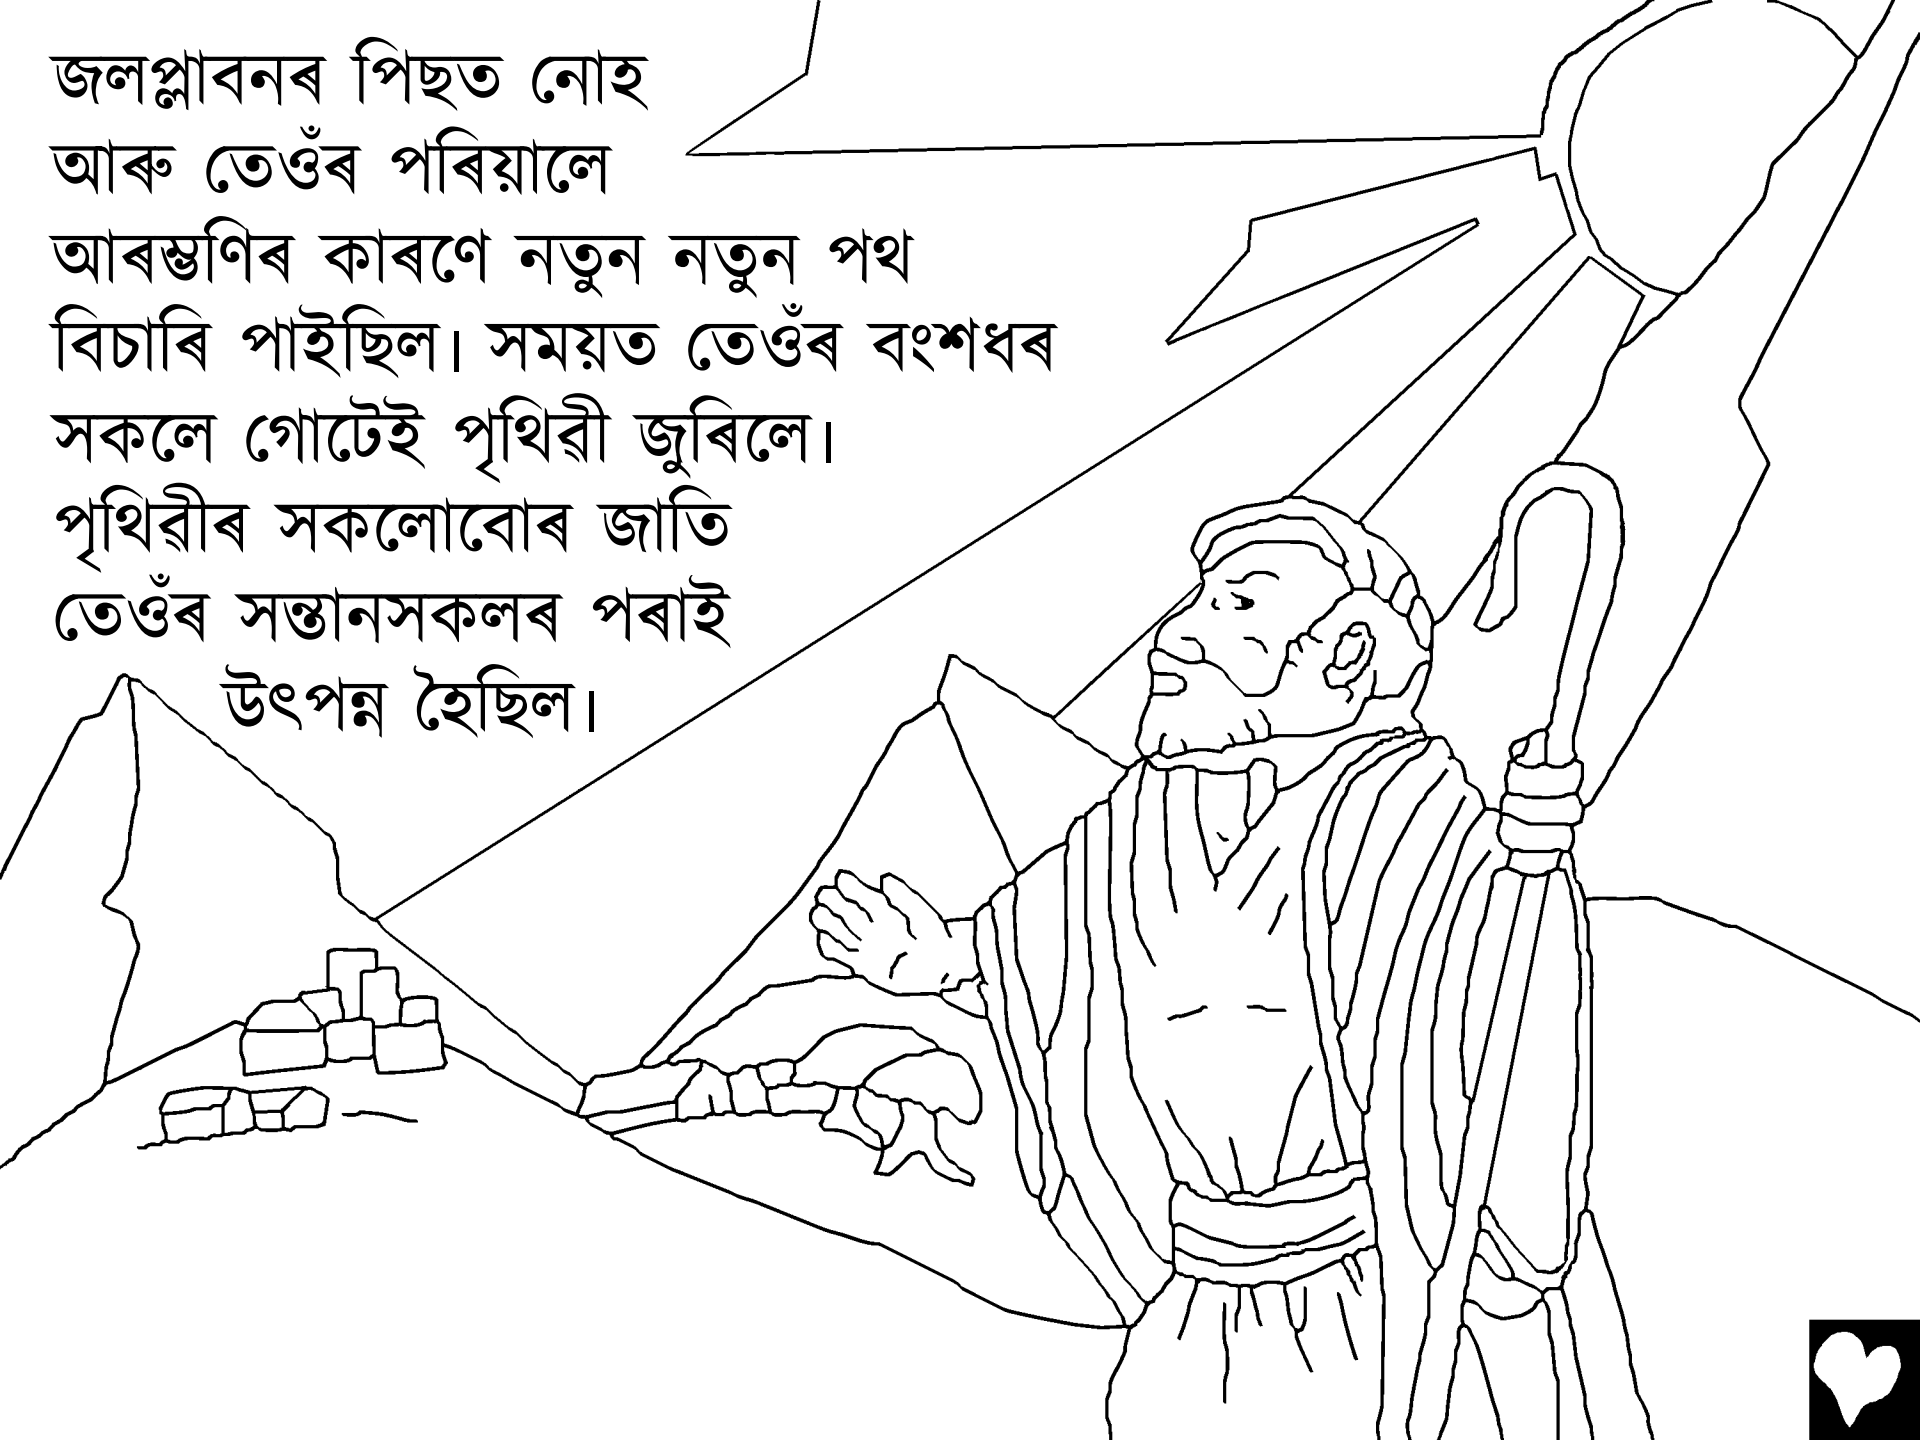 জলপ্লাৱনৰ পিছত নোহ
আৰু তেওঁৰ পৰিয়ালে
আৰম্ভণিৰ কাৰণে নতুন নতুন পথ
বিচাৰি পাইছিল। সময়ত তেওঁৰ বংশধৰ
সকলে গোটেই পৃথিৱী জুৰিলে।
পৃথিৱীৰ সকলোবোৰ জাতি
তেওঁৰ সন্তানসকলৰ পৰাই
উৎপন্ন হৈছিল।